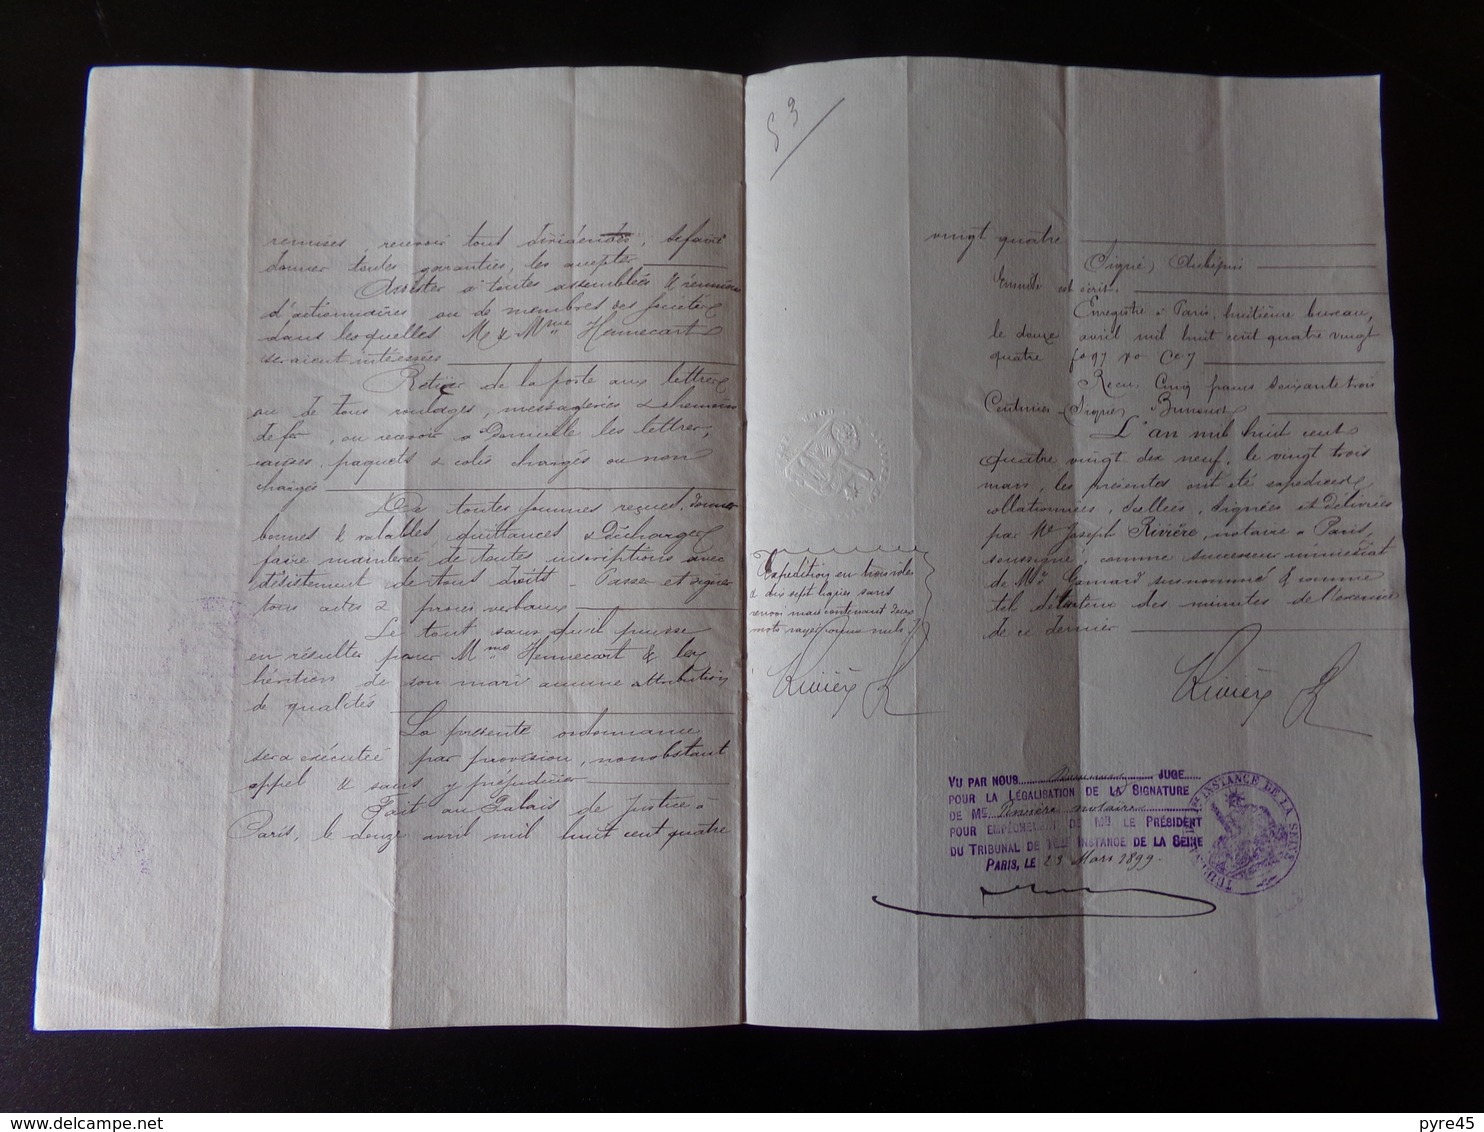 remises, recevoir tout dividendes, se faire
donner toutes garanties, les accepter
Assister à toutes assemblées & réunions
d'actionnaires ou de membres des Sociétés
dans lesquelles M & Mme Hennecart
seraient intéressés
Retirer de la poste aux lettres
ou de tous roulages, messageries & chemins
de fer, ou recevoir à Domicile les lettres,
caisses, paquets & colis chargés ou non
chargés
De toutes sommes reçues, donner
bonnes & valables quittances & décharges
faire mainlevée de toutes inscriptions avec
désistement de tout droits - Passer et signer
tous actes & procès verbaux
Le tout sans qu'il puisse
en résulter pour Mme Hennecart & les
héritiers de son mari aucune attribution
de qualités
La présente ordonnance
sera exécutée par provision, nonobstant
appel & sans y préjudicier
Fait au Palais de Justice à
Paris, le douze avril mil huit cent quatre
53
vingt quatre
Signé, Aubépin
Ensuite est écrit:
Enregistré à Paris, huitième bureau,
le douze avril mil huit cent quatre vingt
quatre fo 97 vo Ce 7
Reçu Cinq francs soixante trois
Centimes (Signé)
L'an mil huit cent
quatre vingt dix neuf, le vingt trois
mars, les présentes ont été expédiées,
collationnées, scellées, signées et délivrées
par Me Joseph Rivière, notaire à Paris,
soussigné, comme successeur médiat
de Me Gamard susnommé & comme
tel détenteur des minutes de l'exercice
de ce dernier
Expédition en trois rôles
& dix sept lignes sans
renvoi mais contenant deux
mots rayés comme nuls
Rivière R
Rivière R
VU PAR NOUS JUGE
POUR LA LÉGALISATION DE LA SIGNATURE
DE ME Rivière notaire
POUR EMPÊCHEMENT DE MR LE PRÉSIDENT
DU TRIBUNAL DE 1ERE INSTANCE DE LA SEINE
PARIS, LE 23 Mars 1899
INSTANCE DE LA SEINE
delcampe.net
pyre45